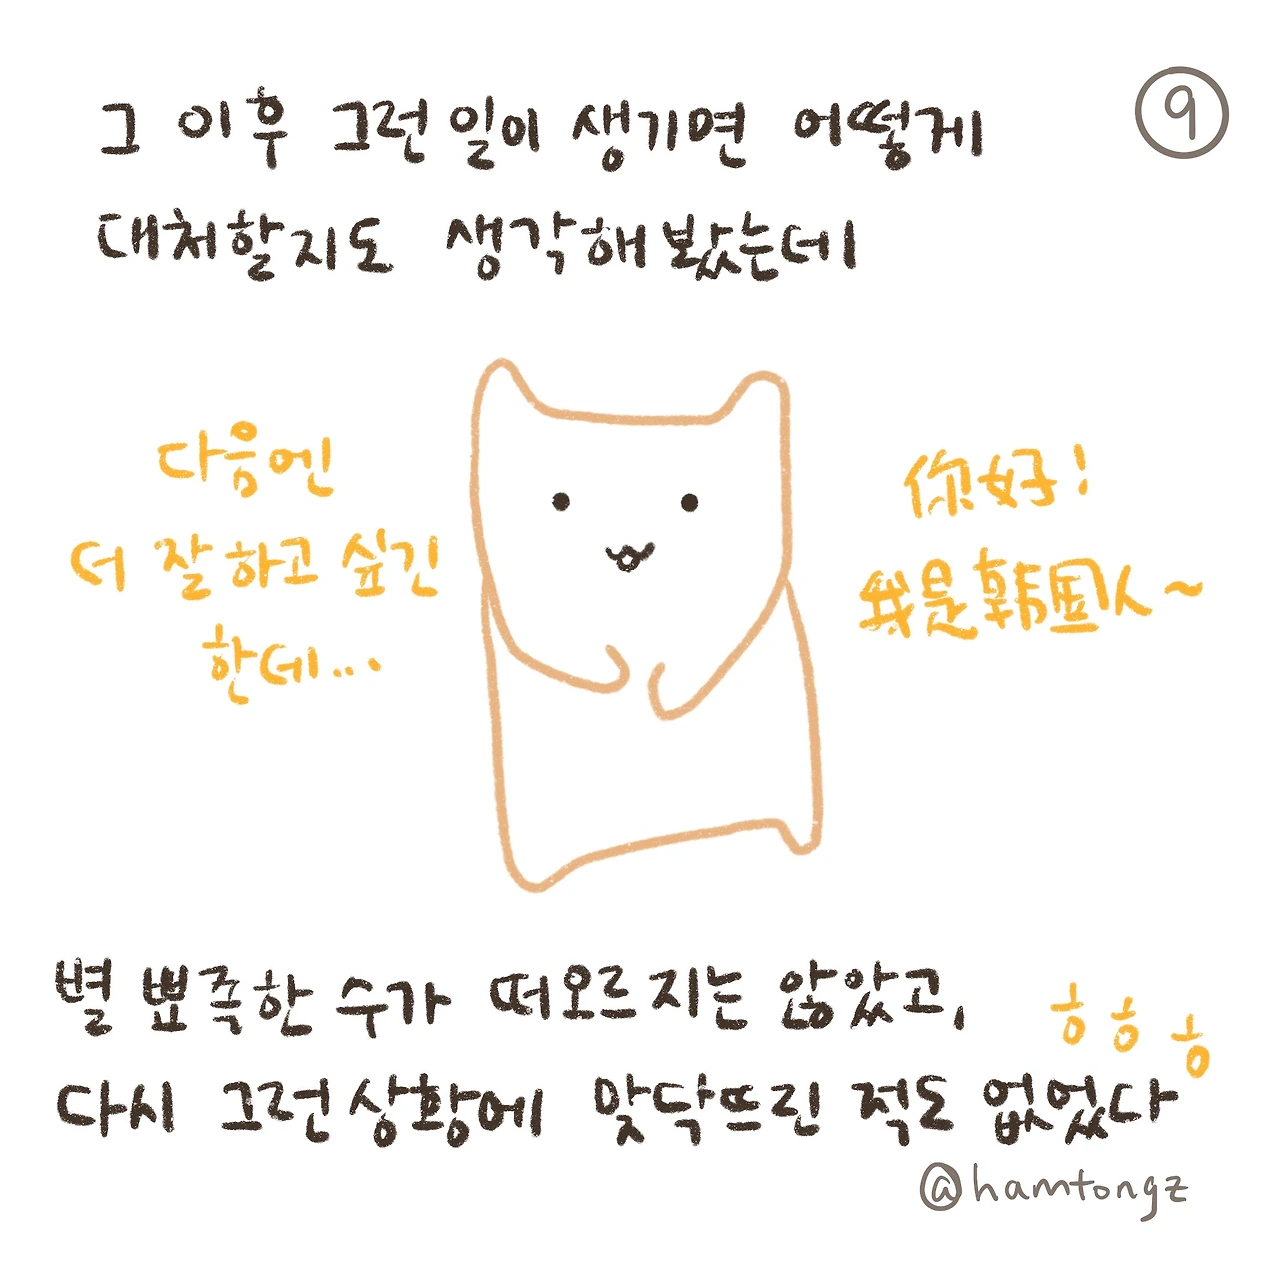 ⑨
그 이후 그런 일이 생기면 어떻게
대처할지도 생각해봤는데
다음엔
더 잘하고 싶긴
한데...
你好!
我是韩国人~
별 뾰족한 수가 떠오르지는 않았고,
ㅎㅎㅎ
다시 그런 상황에 맞닥뜨린 적도 없었다
@hamtongz